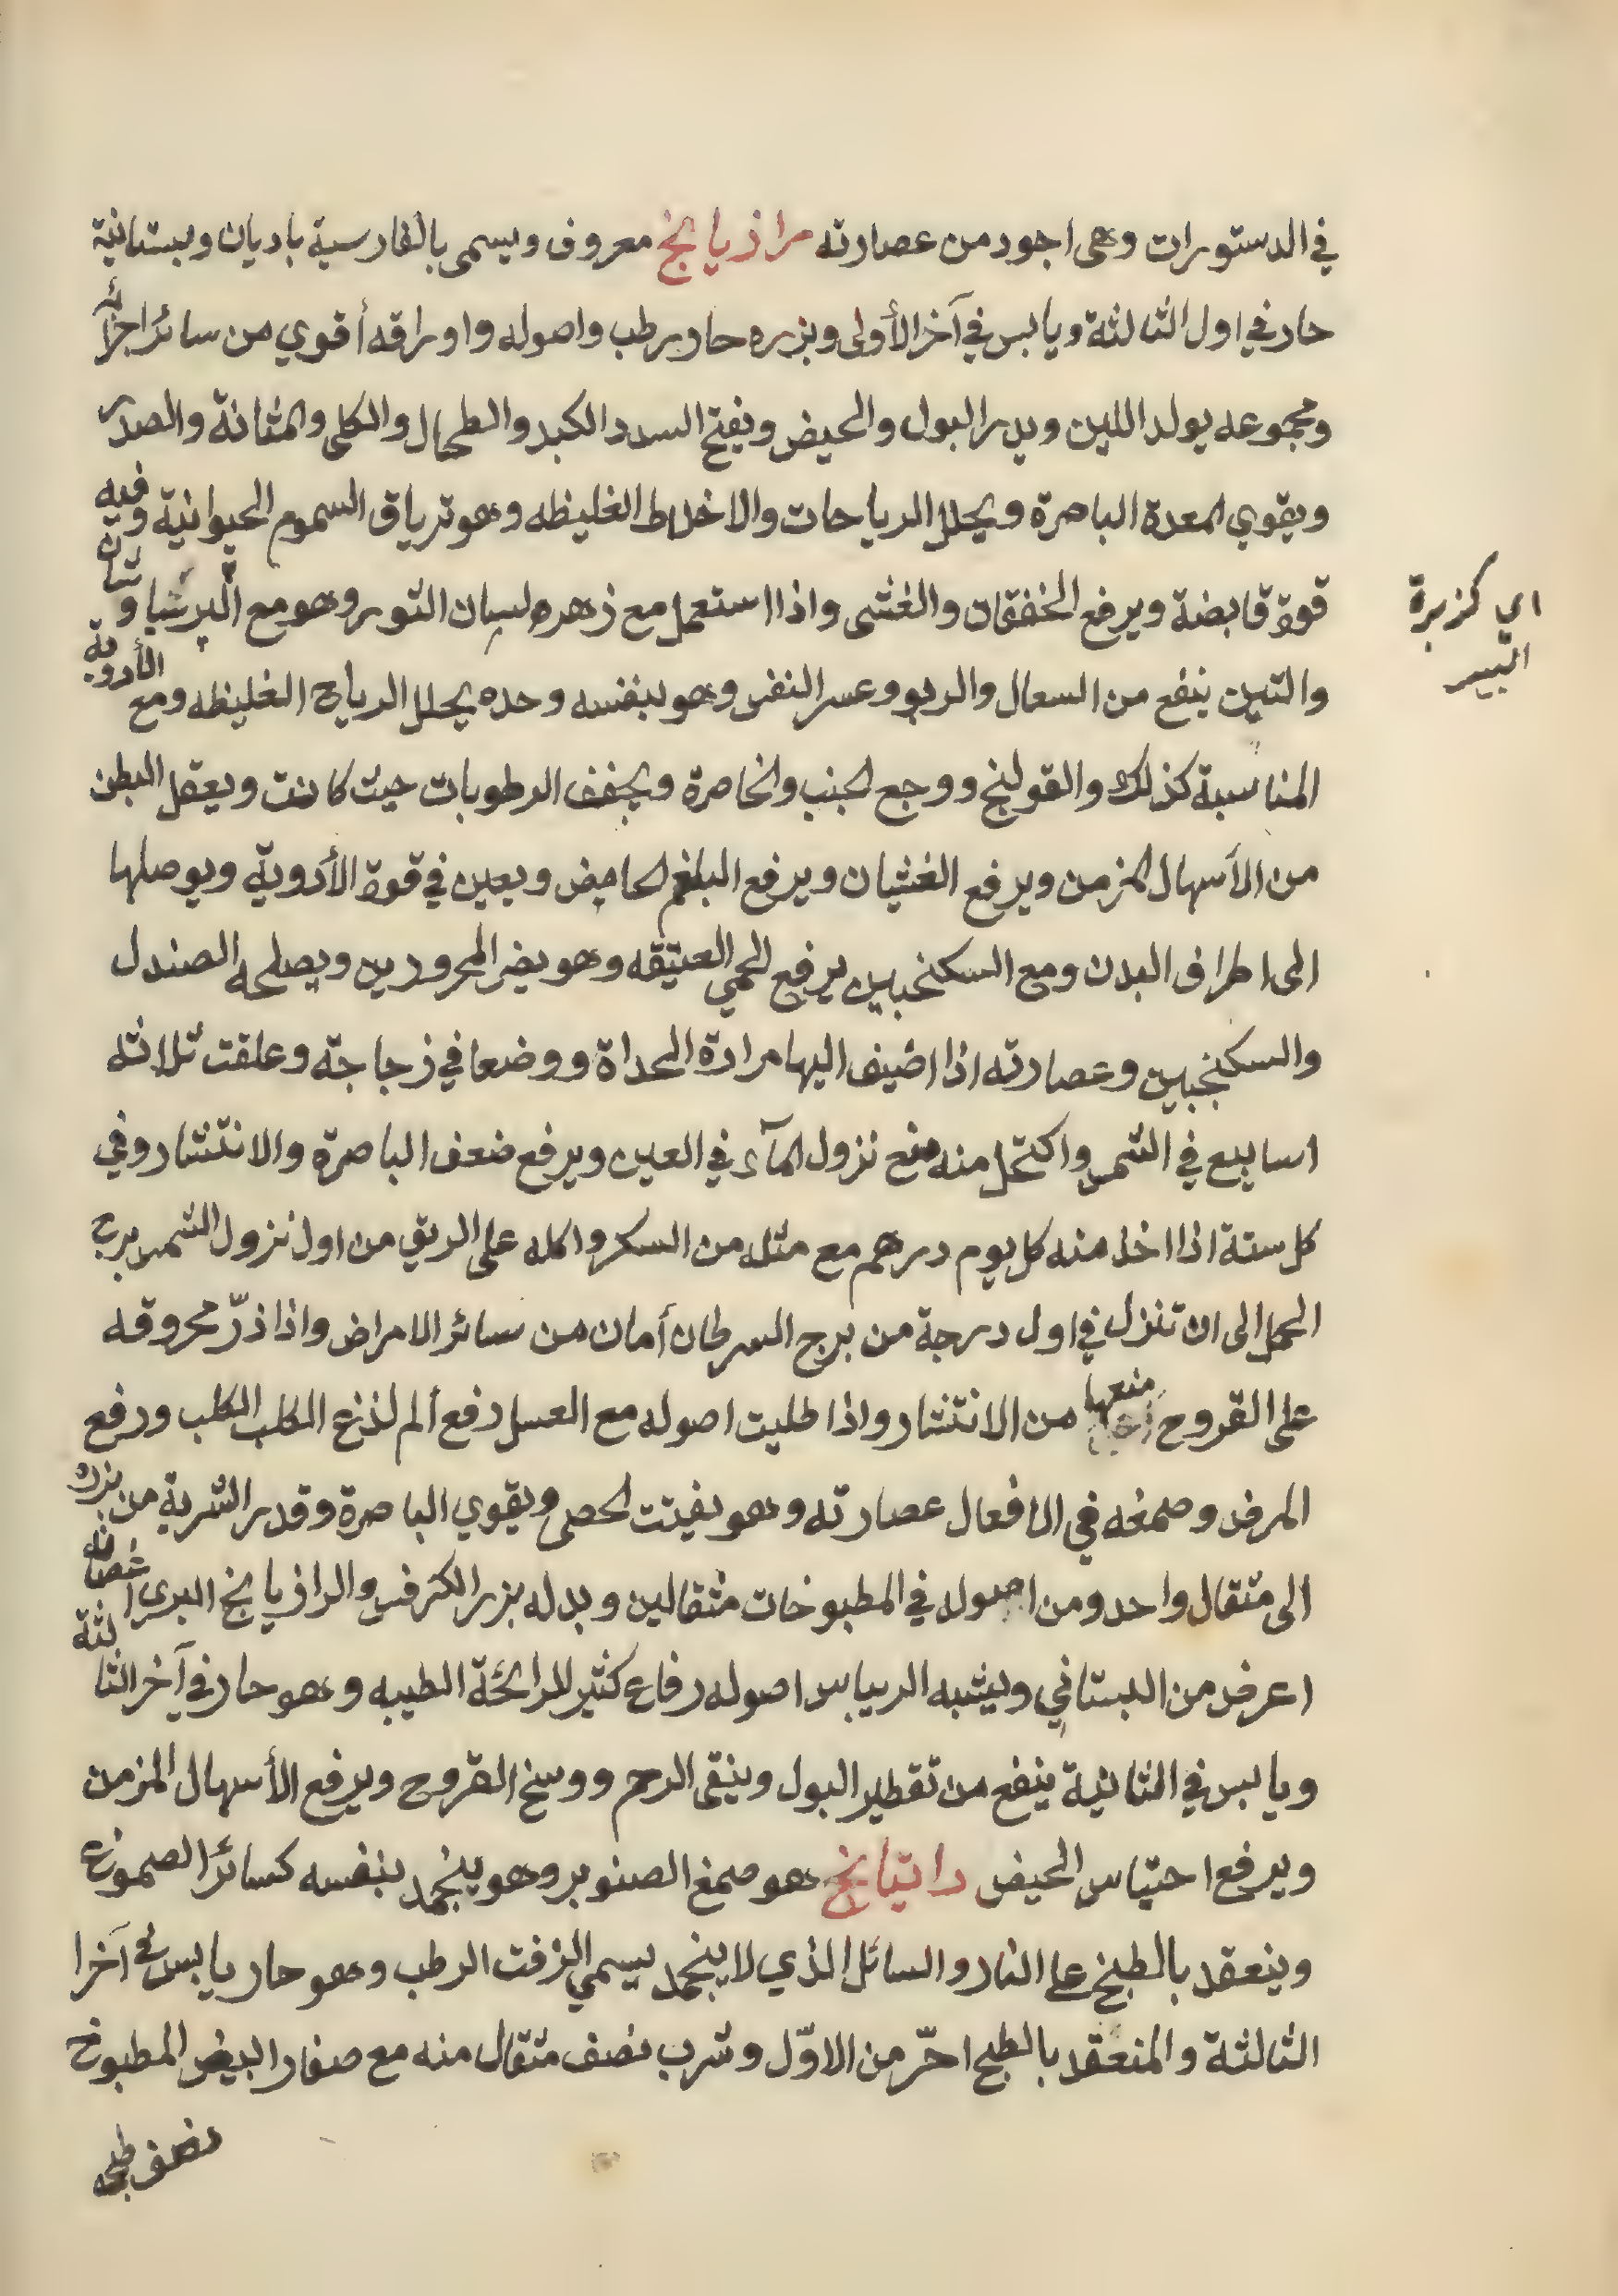 في الدستورات وهى اجود من عصارته رازيانج معروف ويسمى بالفارسية باديان وبستانية
حار في اول الثالثة ويابس في آخر الأولى وبزره حار رطب واصوله واوراقه أقوي من سائر اجزآئه
ومجموعه يولد اللبن ويدر البول والحيض ويفتح السدد الكبد والطحال والكلى والمثانة والصدر
ويقوي المعدة الباصرة ويحلل الرياحات والاخلاط الغليظه وهو ترياق السموم الحيوانية وفيه
قوة قابضة ويرفع الخفقان والغشى واذا استعمل مع زهره لسان الثور وهو مع البرشياوشان
اي كزبرة
البير
والتين ينفع من السعال والربو وعسر النفس وهو بنفسه وحده يحلل الرياح الغليظه ومع الأدوية
المناسبة كذلك والقولنج ووجع الجنب والخاصرة ويجفف الرطوبات حيث كانت ويعقل البطن
من الأسهال المزمن ويرفع الغثيان ويرفع البلغم الحامض ويعين في قوة الأدوية ويوصلها
الى اطراف البدن ومع السكنجبين يرفع الحمي العتيقه وهو يضر المحرورين ويصلحه الصندل
والسكنجبين وعصارته اذا اضيف اليها مرارة الحداة ووضعا في زجاجة وعلقت ثلاثه
اسابيع في الشمس واكتحل منه منع نزول المآء في العين ويرفع ضعف الباصرة والانتشار وفي
كل سنة اذا اخذ منه كل يوم درهم مع مثله من السكر واكله على الريق من اول نزول الشمس برج
الحمل الى ان تنزل في اول درجة من برج السرطان أمان من سائر الامراض واذا ذرّ محروقه
على القروح منعها من الانتشار واذا طليت اصوله مع العسل رفع ألم لذع الكلب الكلب ورفع
المرض وصمغه في الافعال عصارته وهو يفيتت الحصى ويقوي الباصرة وقدر الشربة من بزره
الى مثقال واحد ومن اصوله في المطبوخات مثقالين وبدله بزر الكرفس والرازيانج البرى اغصانه
اعرض من البستاني ويشبه الريباس اصوله رفاع كثير الرائحة الطيبه وهو حار في آخر الثالثة
ويابس في الثانية ينفع من تقطير البول وينقى الرحم ووسخ القروح ويرفع الأسهال المزمن
ويرفع احتباس الحيض راتيانج هو صمغ الصنوبر وهو ينجمد بنفسه كسائر الصموغ
وينعقد بالطبخ على النار والسائل الذي لا ينجمد يسمي الزفت الرطب وهو حار يابس في آخرا
الثالثة والمنعقد بالطبخ احرّ من الاوّل وشرب نصف مثقال منه مع صفار البيض المطبوخ
نصف طبخه